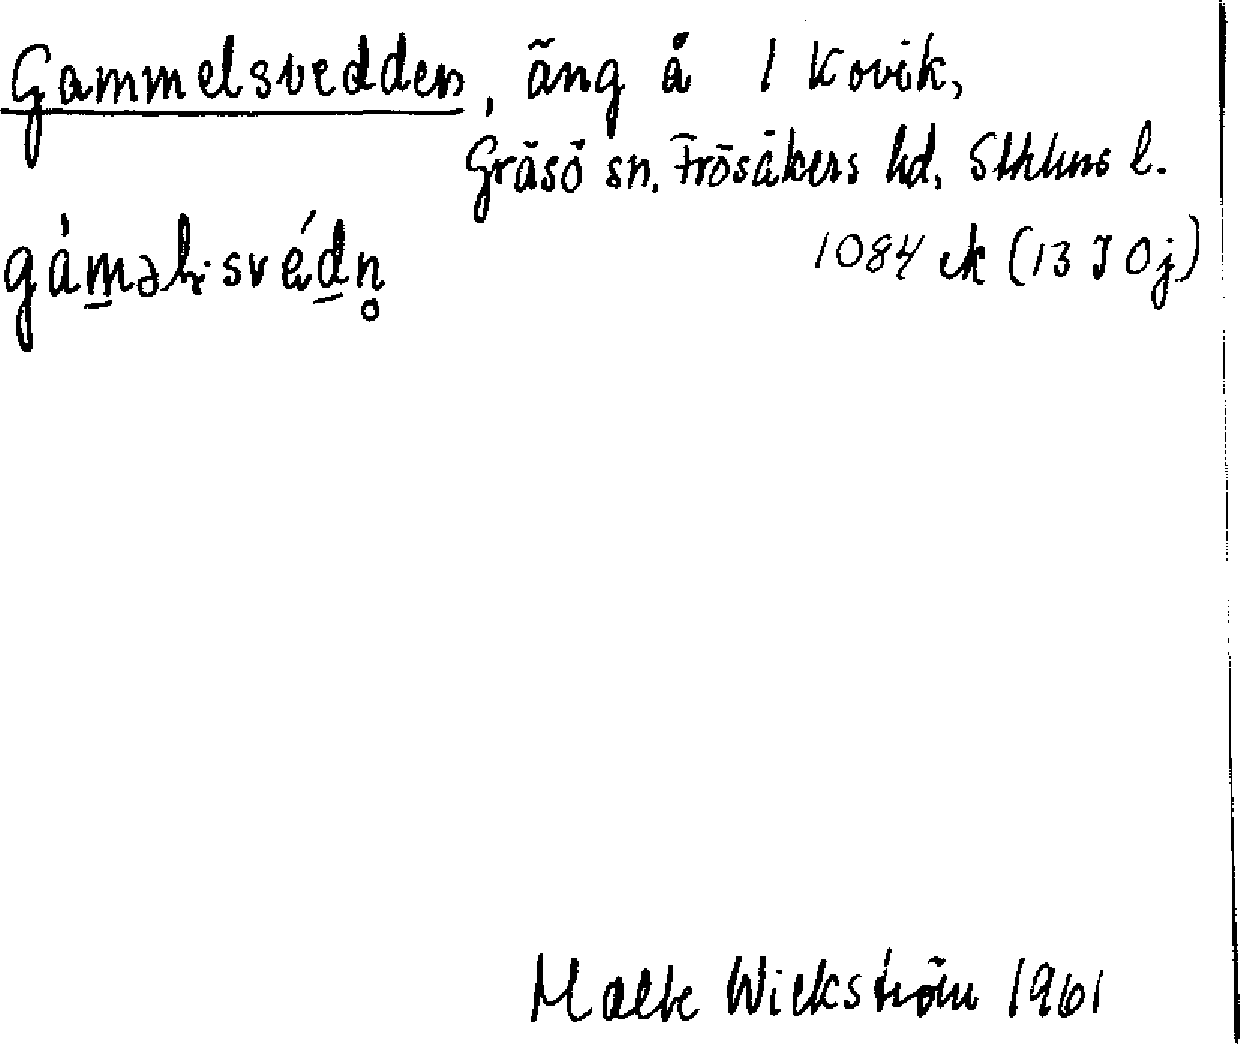 Gammelsvedden, äng å 1 Kovik,
Gräsö sn. Frösåkers hd, Sthlms l.
gàməlsvédn̥ 1084 ek (13 I 0j)
Malte Wickström 1961